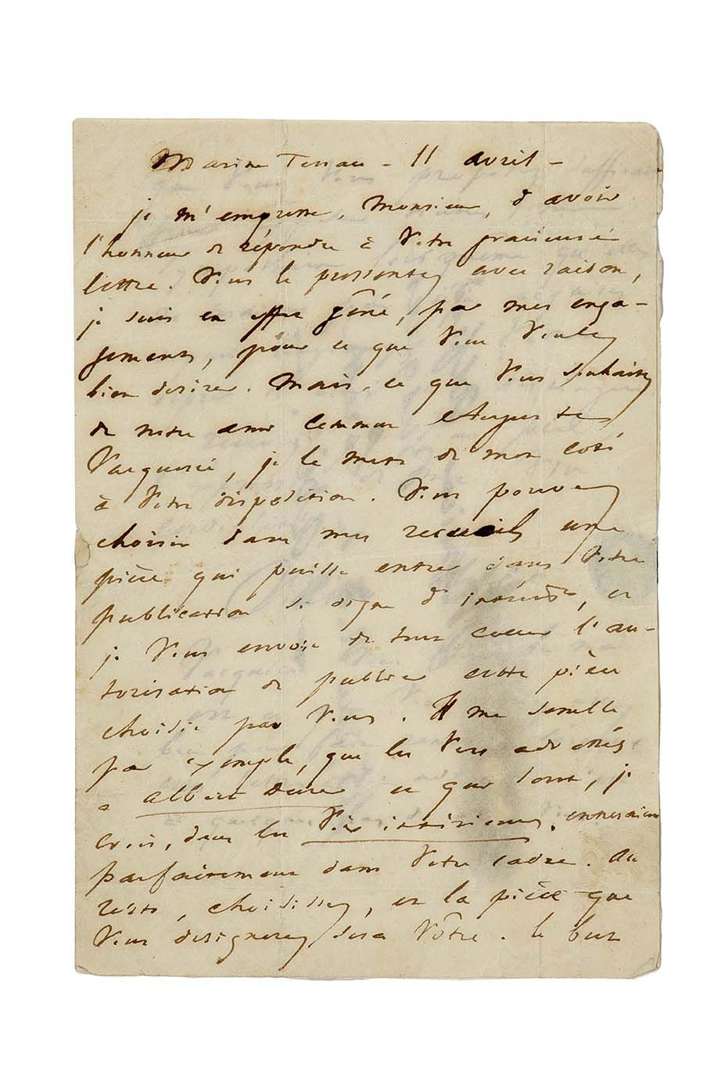 Marine Terrace - 11 avril -
je m'empresse, Monsieur, d'avoir
l'honneur de répondre à votre gracieuse
lettre. Vous le pressentez avec raison,
je suis en effet gêné, par mes enga-
gements, pour ce que vous voulez
bien désirer. Mais, ce que vous souhaitez
de notre ami commun Auguste
Vacquerie, je le mets de mon côté
à votre disposition. Vous pouvez
choisir dans mes recueils une
pièce qui puisse entrer dans votre
publication si digne d'intérêt, et
je vous envoie de tout coeur l'au-
torisation de publier cette pièce
choisie par vous. Il me semble
par exemple, que les vers adressés
à albert Durer et qui sont, je
crois, dans les Voix intérieures, entreraient
parfaitement dans votre cadre. Au
reste, choisissez, et la pièce que
vous désignerez sera vôtre. le but